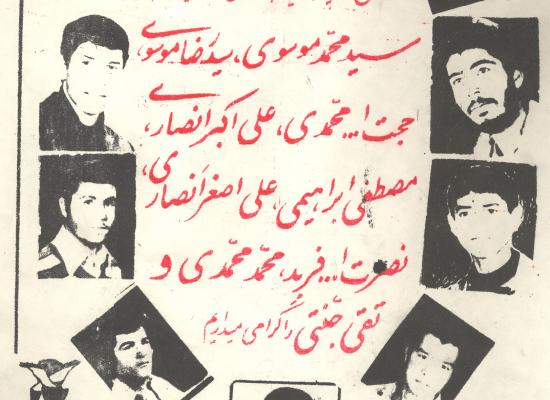 سید محمّد موسوی، سید رضا موسوی،
حجت ا... محمّدی، علی اکبر انصاری،
مصطفی ابراهیمی، علی اصغر انصاری،
نصرت ا... فرید، محمّد محمّدی و
تقی جنّتی را گرامی میداریم